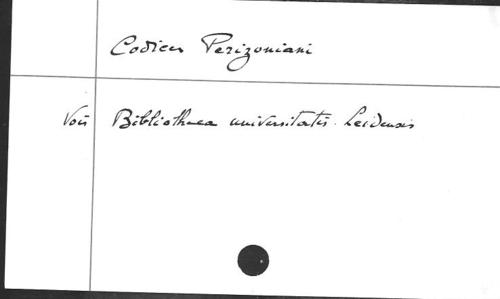 Codices Perizoniani
Voir Bibliotheca universitatis Leidensis